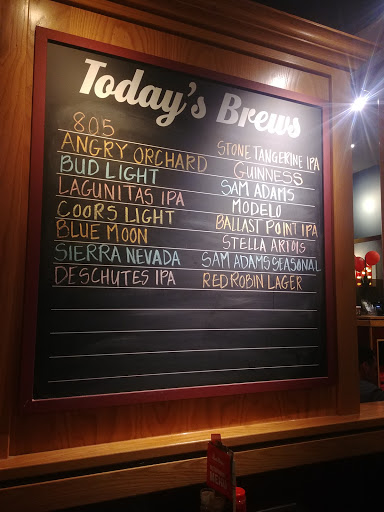 Today's Brews
805
ANGRY ORCHARD
BUD LIGHT
LAGUNITAS IPA
COORS LIGHT
BLUE MOON
SIERRA NEVADA
DESCHUTES IPA
STONE TANGERINE IPA
GUINNESS
SAM ADAMS
MODELO
BALLAST POINT IPA
STELLA ARTOIS
SAM ADAMS SEASONAL
RED ROBIN LAGER